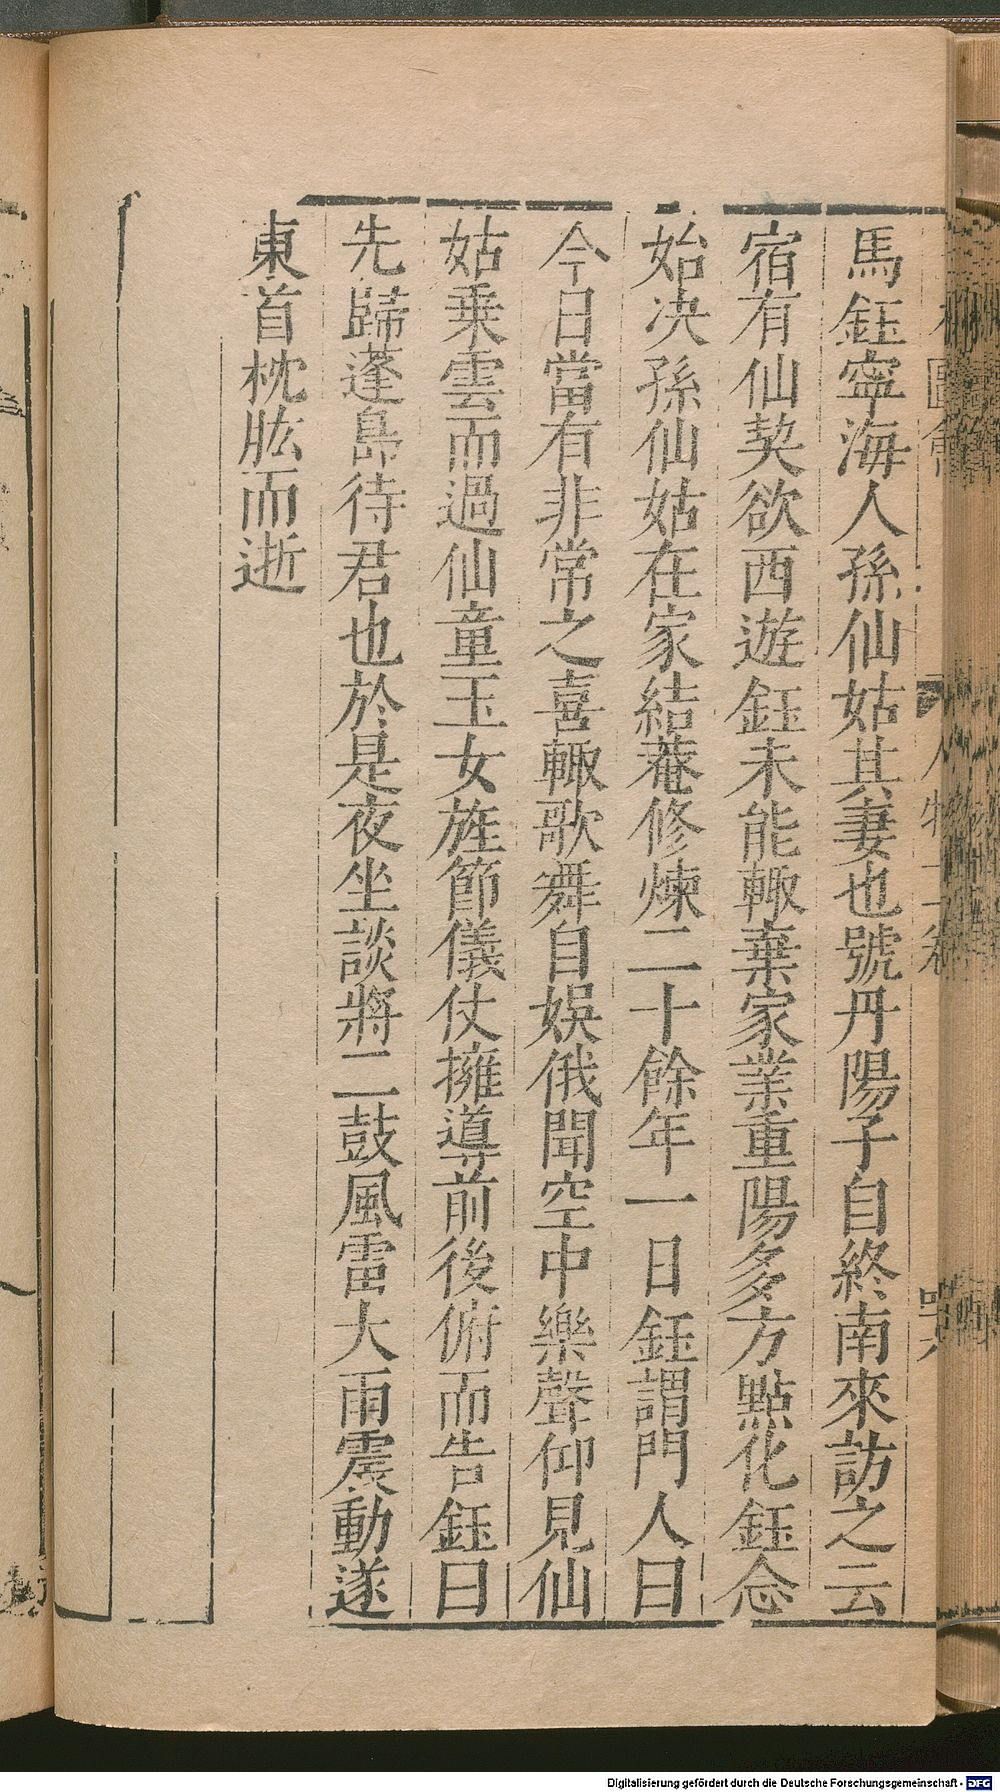 馬鈺寧海人孫仙姑其妻也號丹陽子自終南來訪之云
宿有仙契欲西遊鈺未能輙棄家業重陽多方點化鈺念
始决孫仙姑在家結菴修煉二十餘年一日鈺謂門人曰
今日當有非常之喜輙歌舞自娛俄聞空中樂聲仰見仙
姑乗雲而過仙童玉女旌節儀仗擁導前後俯而告鈺曰
先歸蓬島待君也於是夜坐談將二鼓風雷大雨震動遂
東首枕肱而逝
Digitalisierung gefördert durch die Deutsche Forschungsgemeinschaft - DFG